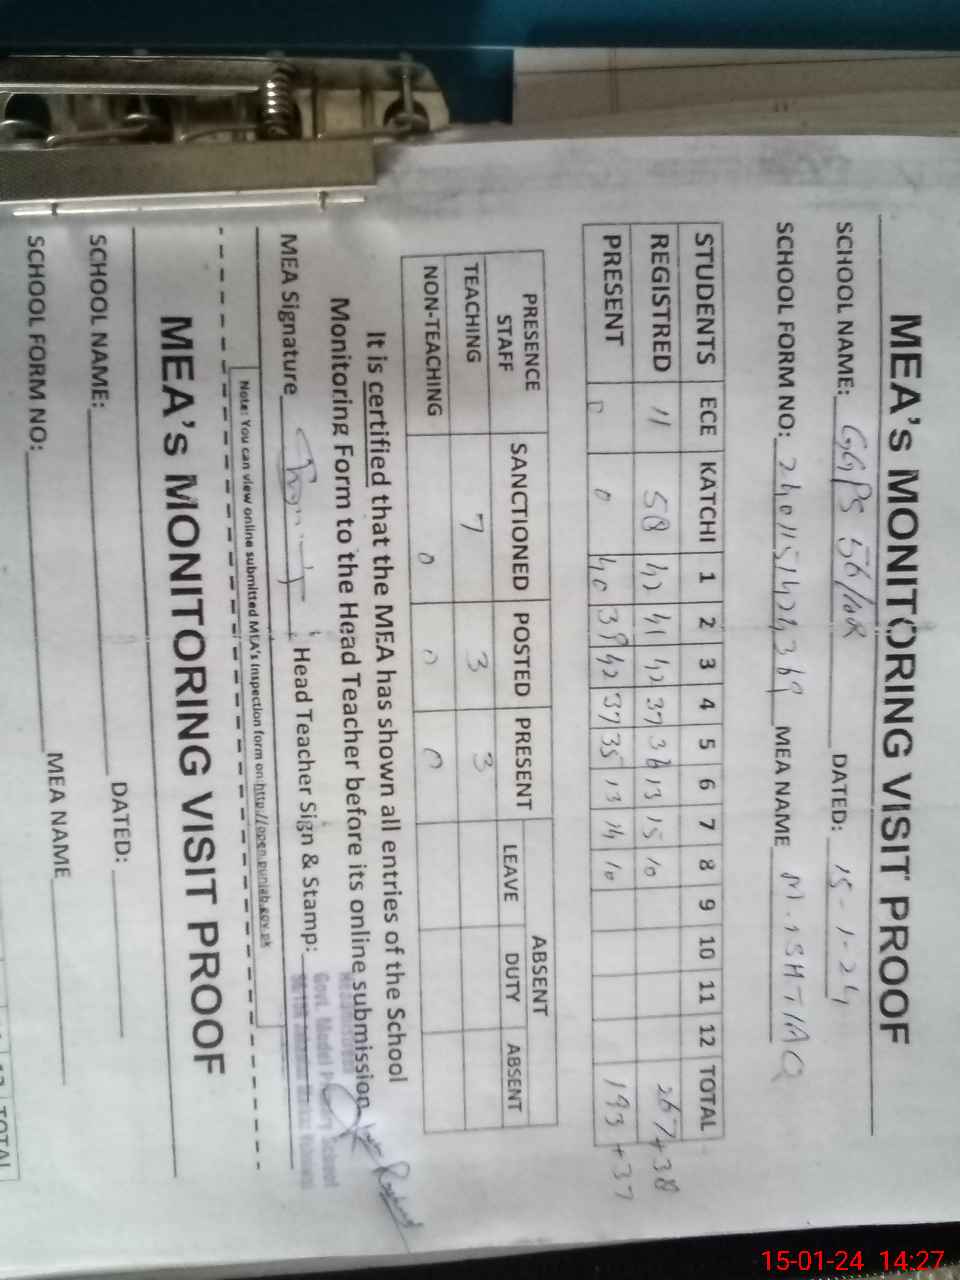 MEA's MONITORING VISIT PROOF
SCHOOL NAME: GGPS 56/10R DATED: 15-1-24
SCHOOL FORM NO: MEA NAME M. ISHTIAQ
STUDENTS ECE KATCHI 1 2 3 4 5 6 7 8 9 10 11 12 TOTAL
REGISTRED 11 58 42 41 42 37 36 13 15 10 267+38
PRESENT 0 0 40 39 42 37 35 13 14 10 193+37
PRESENCE STAFF SANCTIONED POSTED PRESENT ABSENT
LEAVE DUTY ABSENT
TEACHING 7 3 3
NON-TEACHING 0 0 0
It is certified that the MEA has shown all entries of the School
Monitoring Form to the Head Teacher before its online submission
MEA Signature Head Teacher Sign & Stamp:
Govt. Model Primary School
Note: You can view online submitted MEA's Inspection form on http://open.punjab.gov.pk
MEA's MONITORING VISIT PROOF
SCHOOL NAME: DATED:
SCHOOL FORM NO: MEA NAME
12 TOTAL
15-01-24 14:27